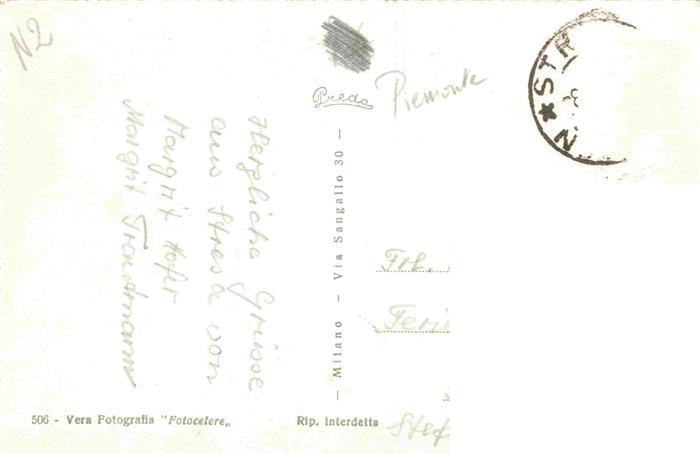 N2
Herzliche Grüsse
aus Stresa von
Margrit Hofer
Margrit
Preda
Piemonte
— Milano — Via Sangallo 30 —
STR
N
Frl.
Ferie
Stef
506 - Vera Fotografia "Fotocelere„
Rip. interdetta